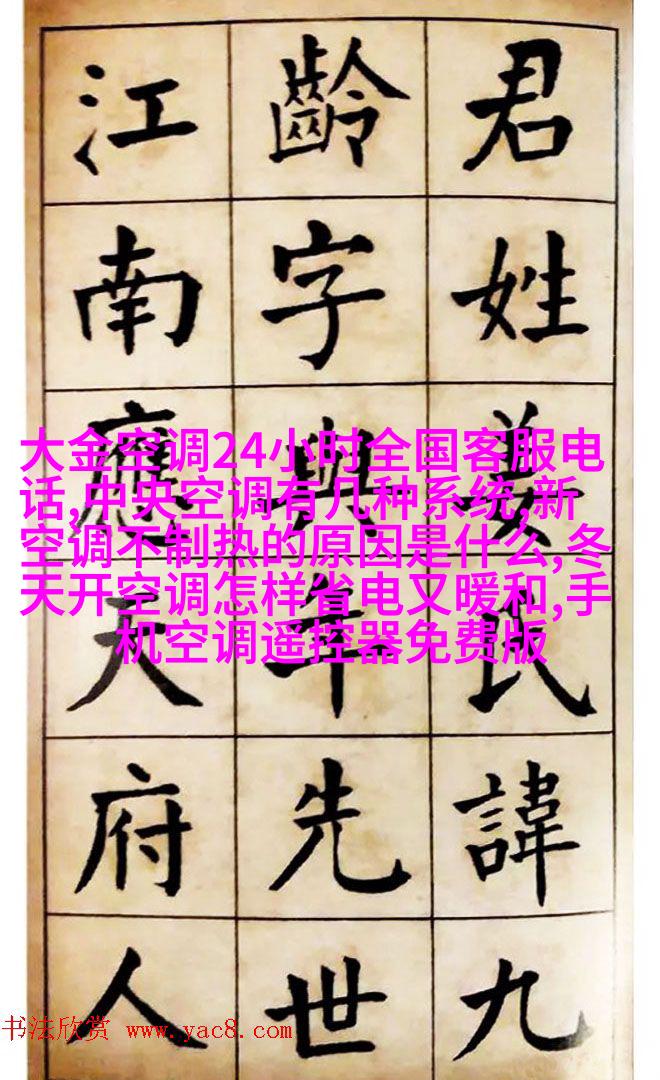 君姓姜氏諱九
齡字與年先世
江南應天府人
大金空调24小时全国客服电
话,中央空调有几种系统,新
空调不制热的原因是什么,冬
天开空调怎样省电又暖和,手
机空调遥控器免费版
书法欣赏 www.yac8.com